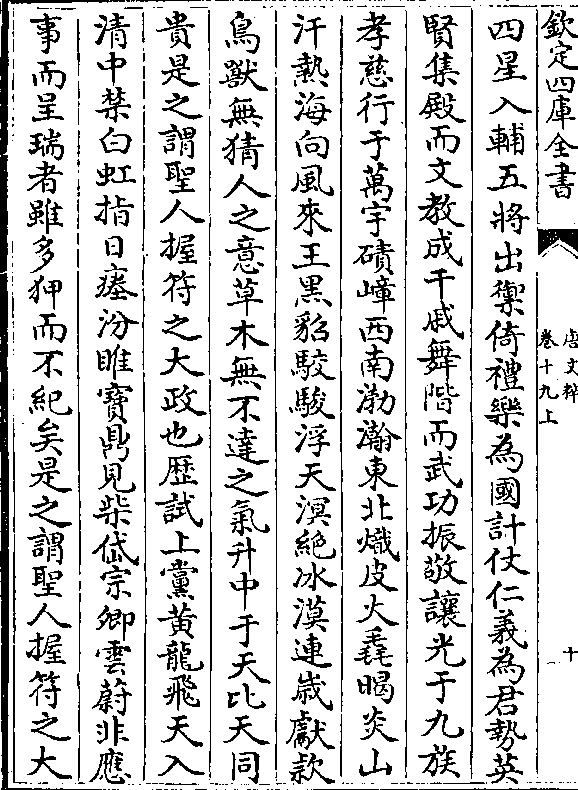 欽定四庫全書
唐文粹
卷十九上
十
四星入輔五將出禦倚禮樂為國計仗仁義為君勢英
賢集殿而文教成干戚舞階而武功振敬讓光于九族
孝慈行于萬宇磧嶂西南渤瀚東北熾皮火毳暍炎山
汗熱海向風來王黑貂駮駿浮天溟絶冰漠連歲獻款
鳥獸無猜人之意草木無不達之氣升中于天比天同
貴是之謂聖人握符之大政也歴試上黨黄龍飛天入
清中禁白虹指日瘞汾睢寶鼎見柴岱宗卿雲蔚非應
事而呈瑞者雖多狎而不紀矣是之謂聖人握符之大